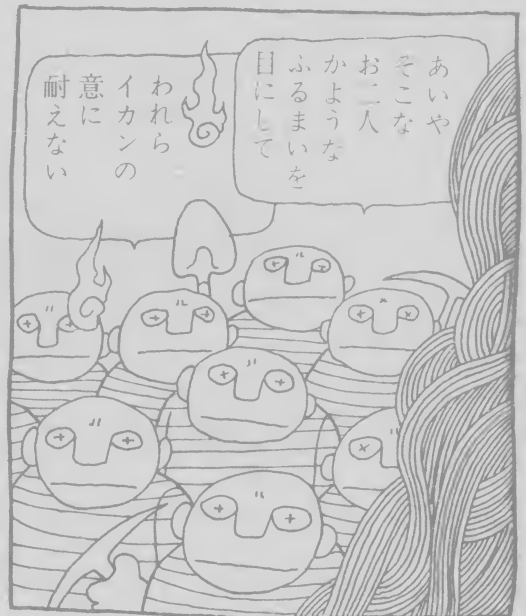 あいや
そこな
お二人
かような
ふるまいを
目にして
われら
イカンの
意に
耐えない